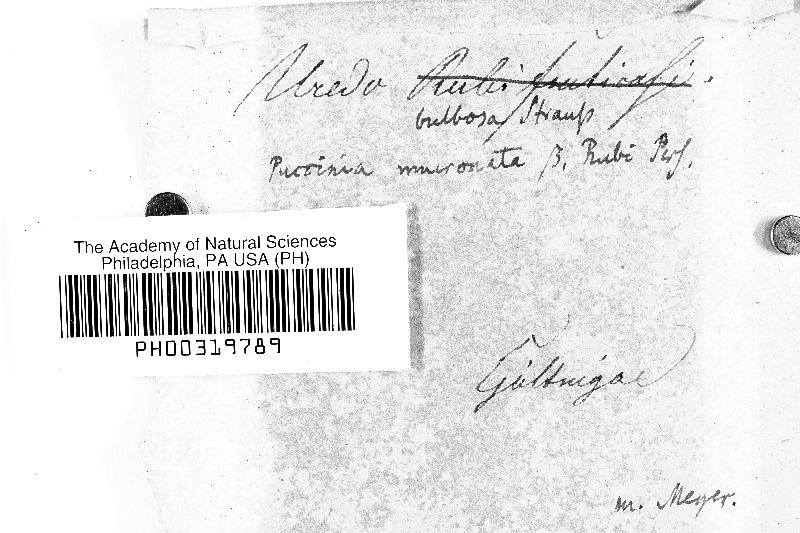 Uredo Rubi fruticosi.
bulbosa Strauß
Puccinia mucronata β. Rubi Pers.
The Academy of Natural Sciences
Philadelphia, PA USA (PH)
PH00319789
m. Meyer.